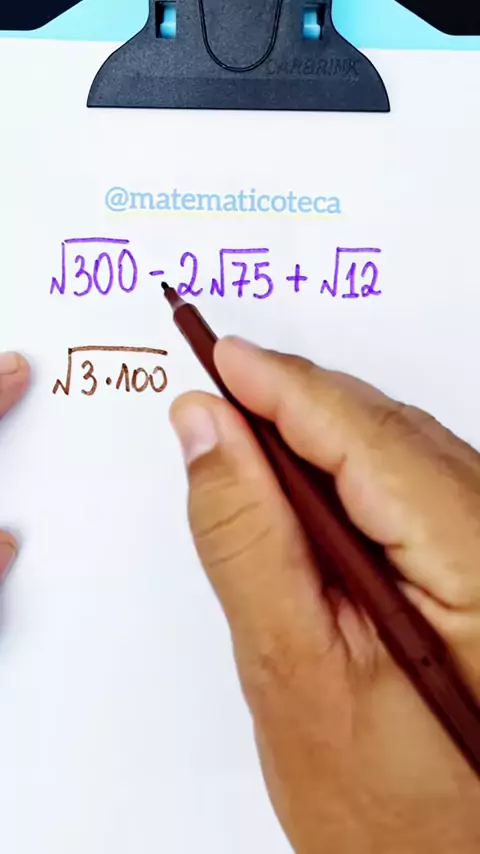 CARBRINK
@matematicoteca
√300 - 2√75 + √12
√3·100